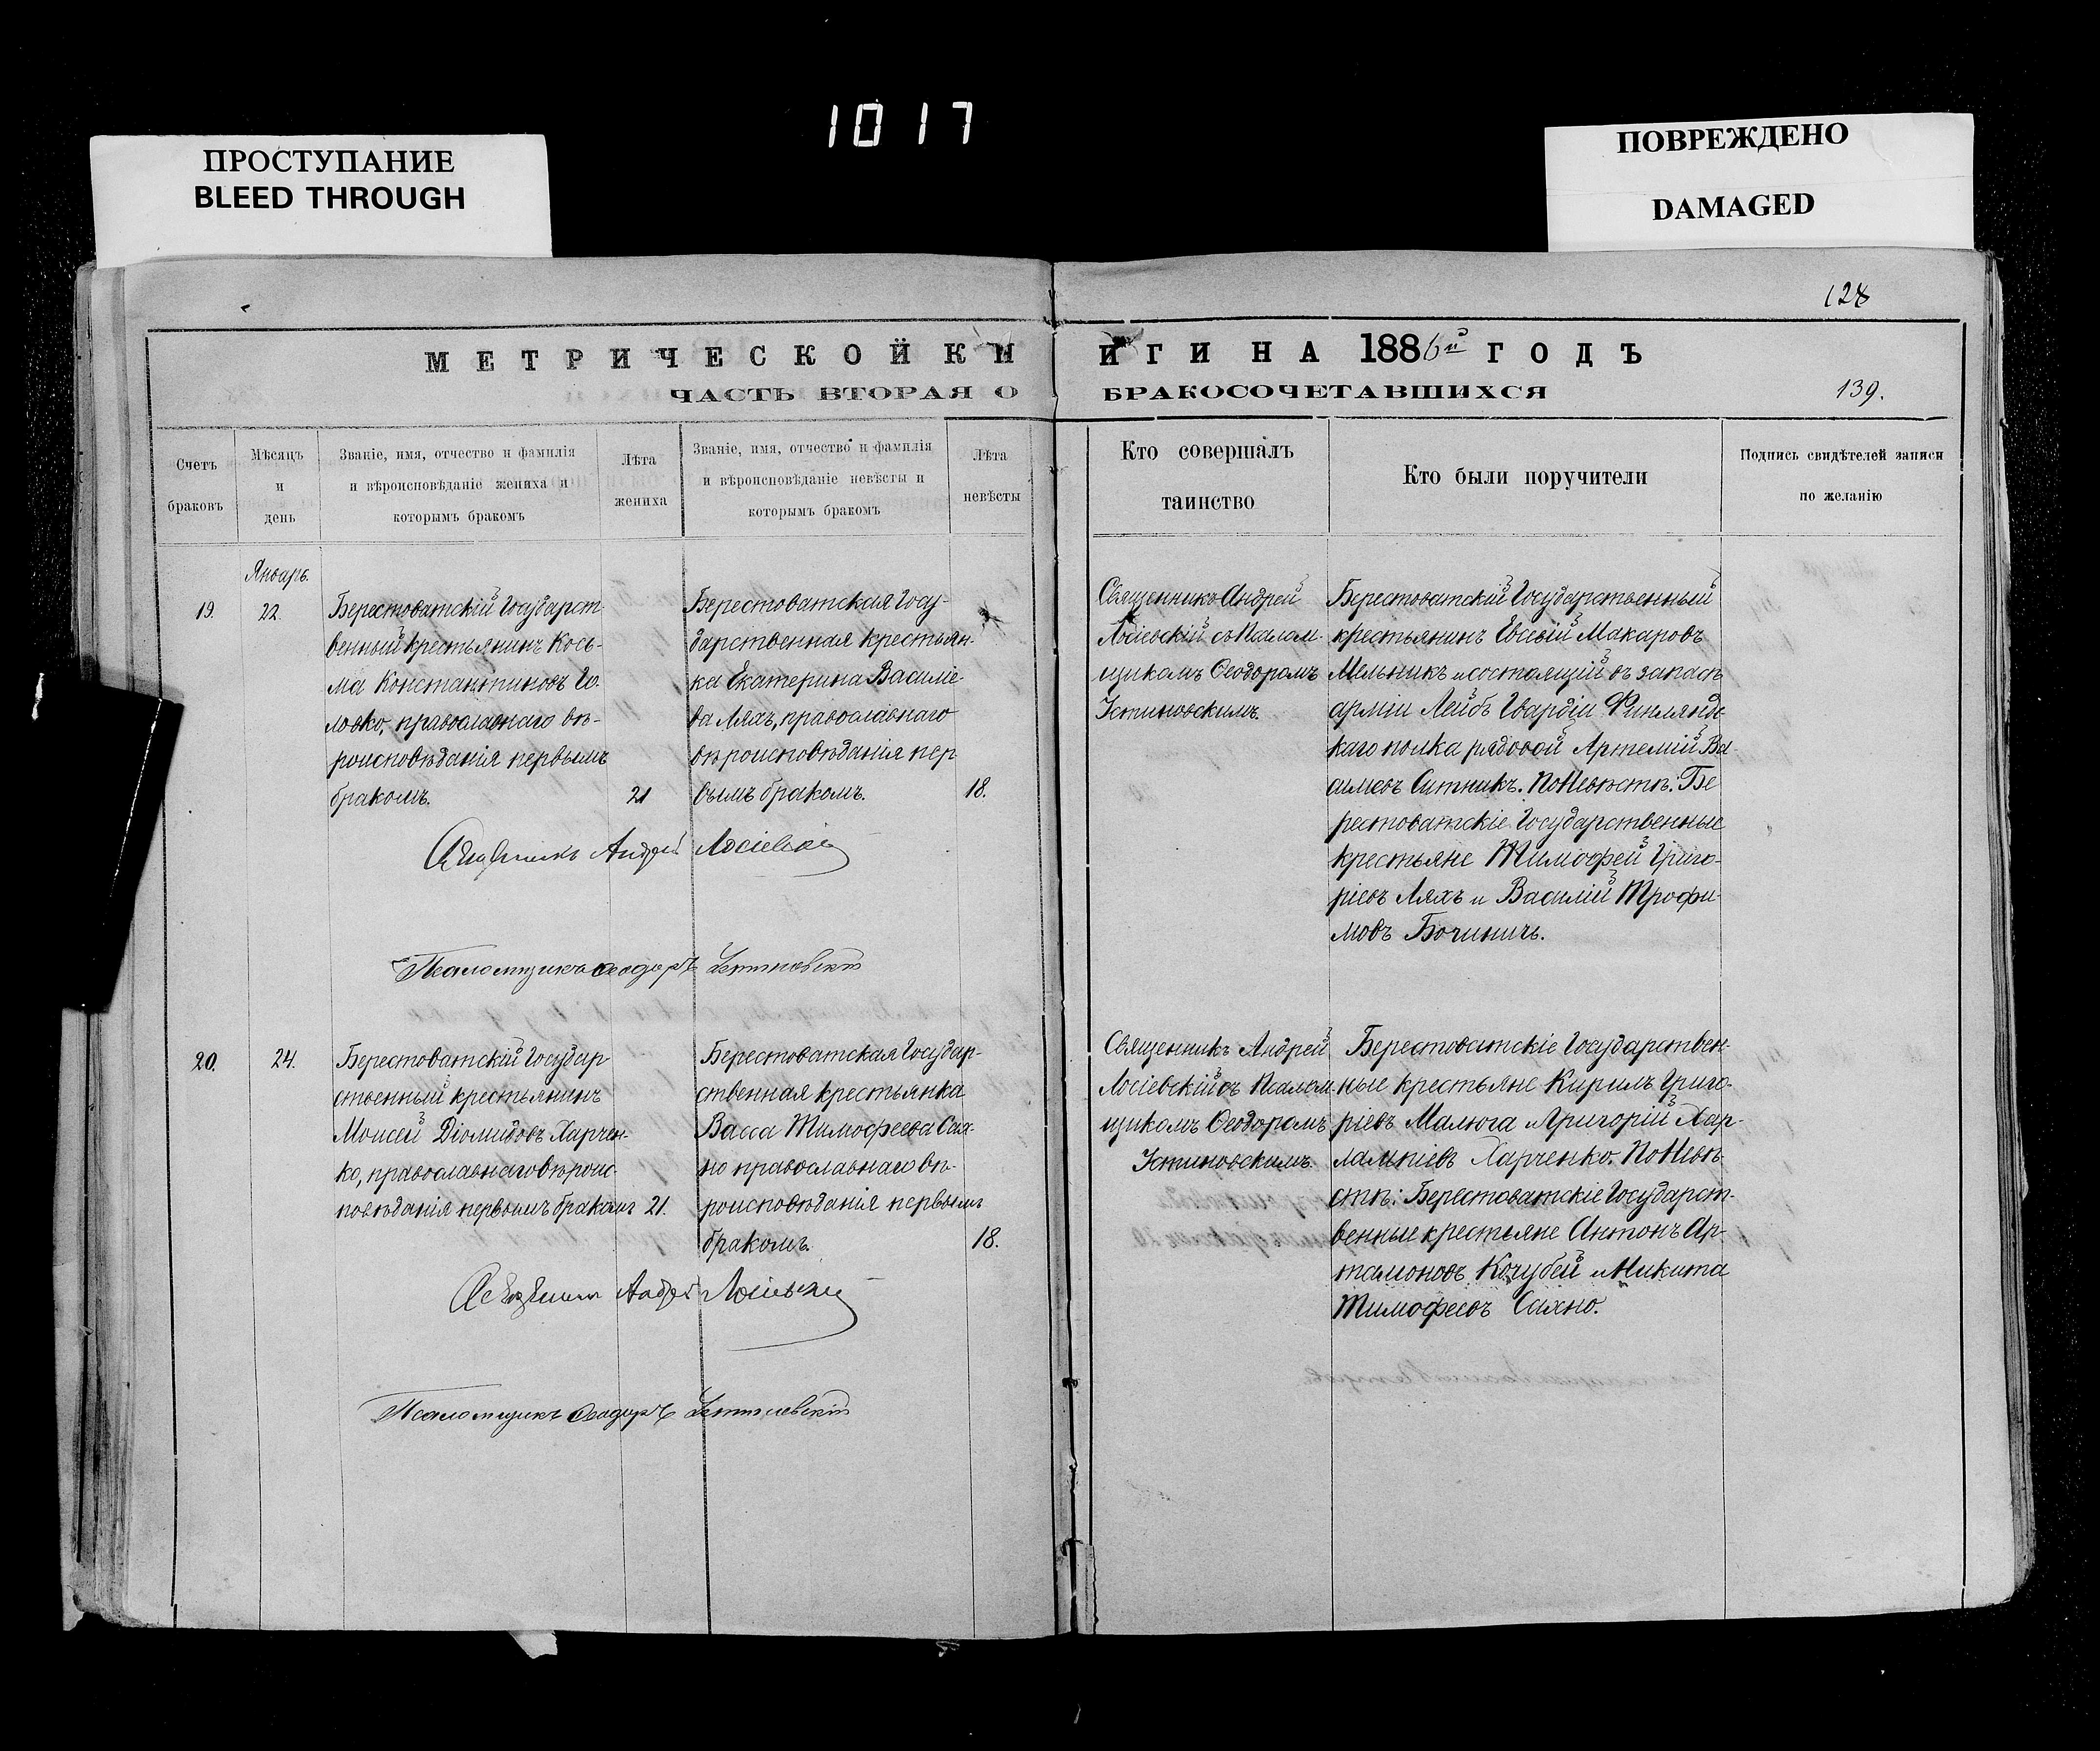 1017
ПРОСТУПАНИЕ
BLEED THROUGH
ПОВРЕЖДЕНО
DAMAGED
128
МЕТРИЧЕСКОЙ КНИГИ НА 1886й ГОДЪ
ЧАСТЬ ВТОРАЯ О БРАКОСОЧЕТАВШИХСЯ
139.
Счетъ
браковъ
Мѣсяцъ
и
день
Званіе, имя, отчество и фамилія
и вѣроисповѣданіе жениха и
которымъ бракомъ
Лѣта
жениха
Званіе, имя, отчество и фамилія
и вѣроисповѣданіе невѣсты и
которымъ бракомъ
Лѣта
невѣсты
Кто совершалъ
таинство
Кто были поручители
Подпись свидѣтелей записи
по желанію
Январь.
19.
22.
Берестоватскій Государст
венный крестьянинъ Кось-
ма Константиновъ Го-
ловко, православнаго вѣ-
роисповѣданія первымъ
бракомъ.
21
Берестоватская Госу-
дарственная крестьян-
ка Екатерина Василіе-
ва Ляхъ, православнаго
вѣроисповѣданія пер
вымъ бракомъ.
18.
Священникъ Андрей
Лосіевскій съ Псалом-
щикомъ Ѳеодоромъ
Устиновскимъ.
Берестоватскій Государственный
крестьянинъ Евсевій Макаровъ
Мельникъ и состоящій въ запасѣ
арміи Лейбъ Гвардіи Финлянд-
каго полка рядовой Артемій Ва-
силіевъ Ситникъ. По Невѣстѣ: Бе
рестоватскіе Государственные
крестьяне Тимофей Григо-
ріевъ Ляхъ и Василій Трофи-
мовъ Бочининъ.
Священникъ Андрей Лосіевскій
Псаломщикъ Ѳеодоръ Устиновскій
20.
24.
Берестоватскій Государ
ственный крестьянинъ
Моисей Діомидовъ Харчен-
ко, православнаго вѣроис-
повѣданія первымъ бракомъ
21.
Берестоватская Государ-
ственная крестьянка
Васса Тимофеева Сах-
но православнаго вѣ-
роисповѣданія первымъ
бракомъ.
18.
Священникъ Андрей
Лосіевскій съ Псалом-
щикомъ Ѳеодоромъ
Устиновскимъ.
Берестоватскіе Государствен-
ные крестьяне Кирилъ Григо-
ріевъ Малюга и Григорій Хар-
лампіевъ Харченко. По Невѣ-
стѣ: Берестоватскіе Государст-
венные крестьяне Антонъ Ар-
тамоновъ Кочубей и Никита
Тимофеевъ Сахно.
Священникъ Андрей Лосіевскій
Псаломщикъ Ѳеодоръ Устиновскій